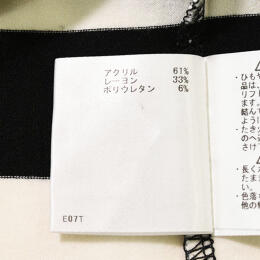 アクリル 61%
レーヨン 33%
ポリウレタン 6%
E07T
・ひもや
品は、
リフト
ます。
結んで
ように
・たき
のへ
さけ
・長く
たま
い。
・色落
他の